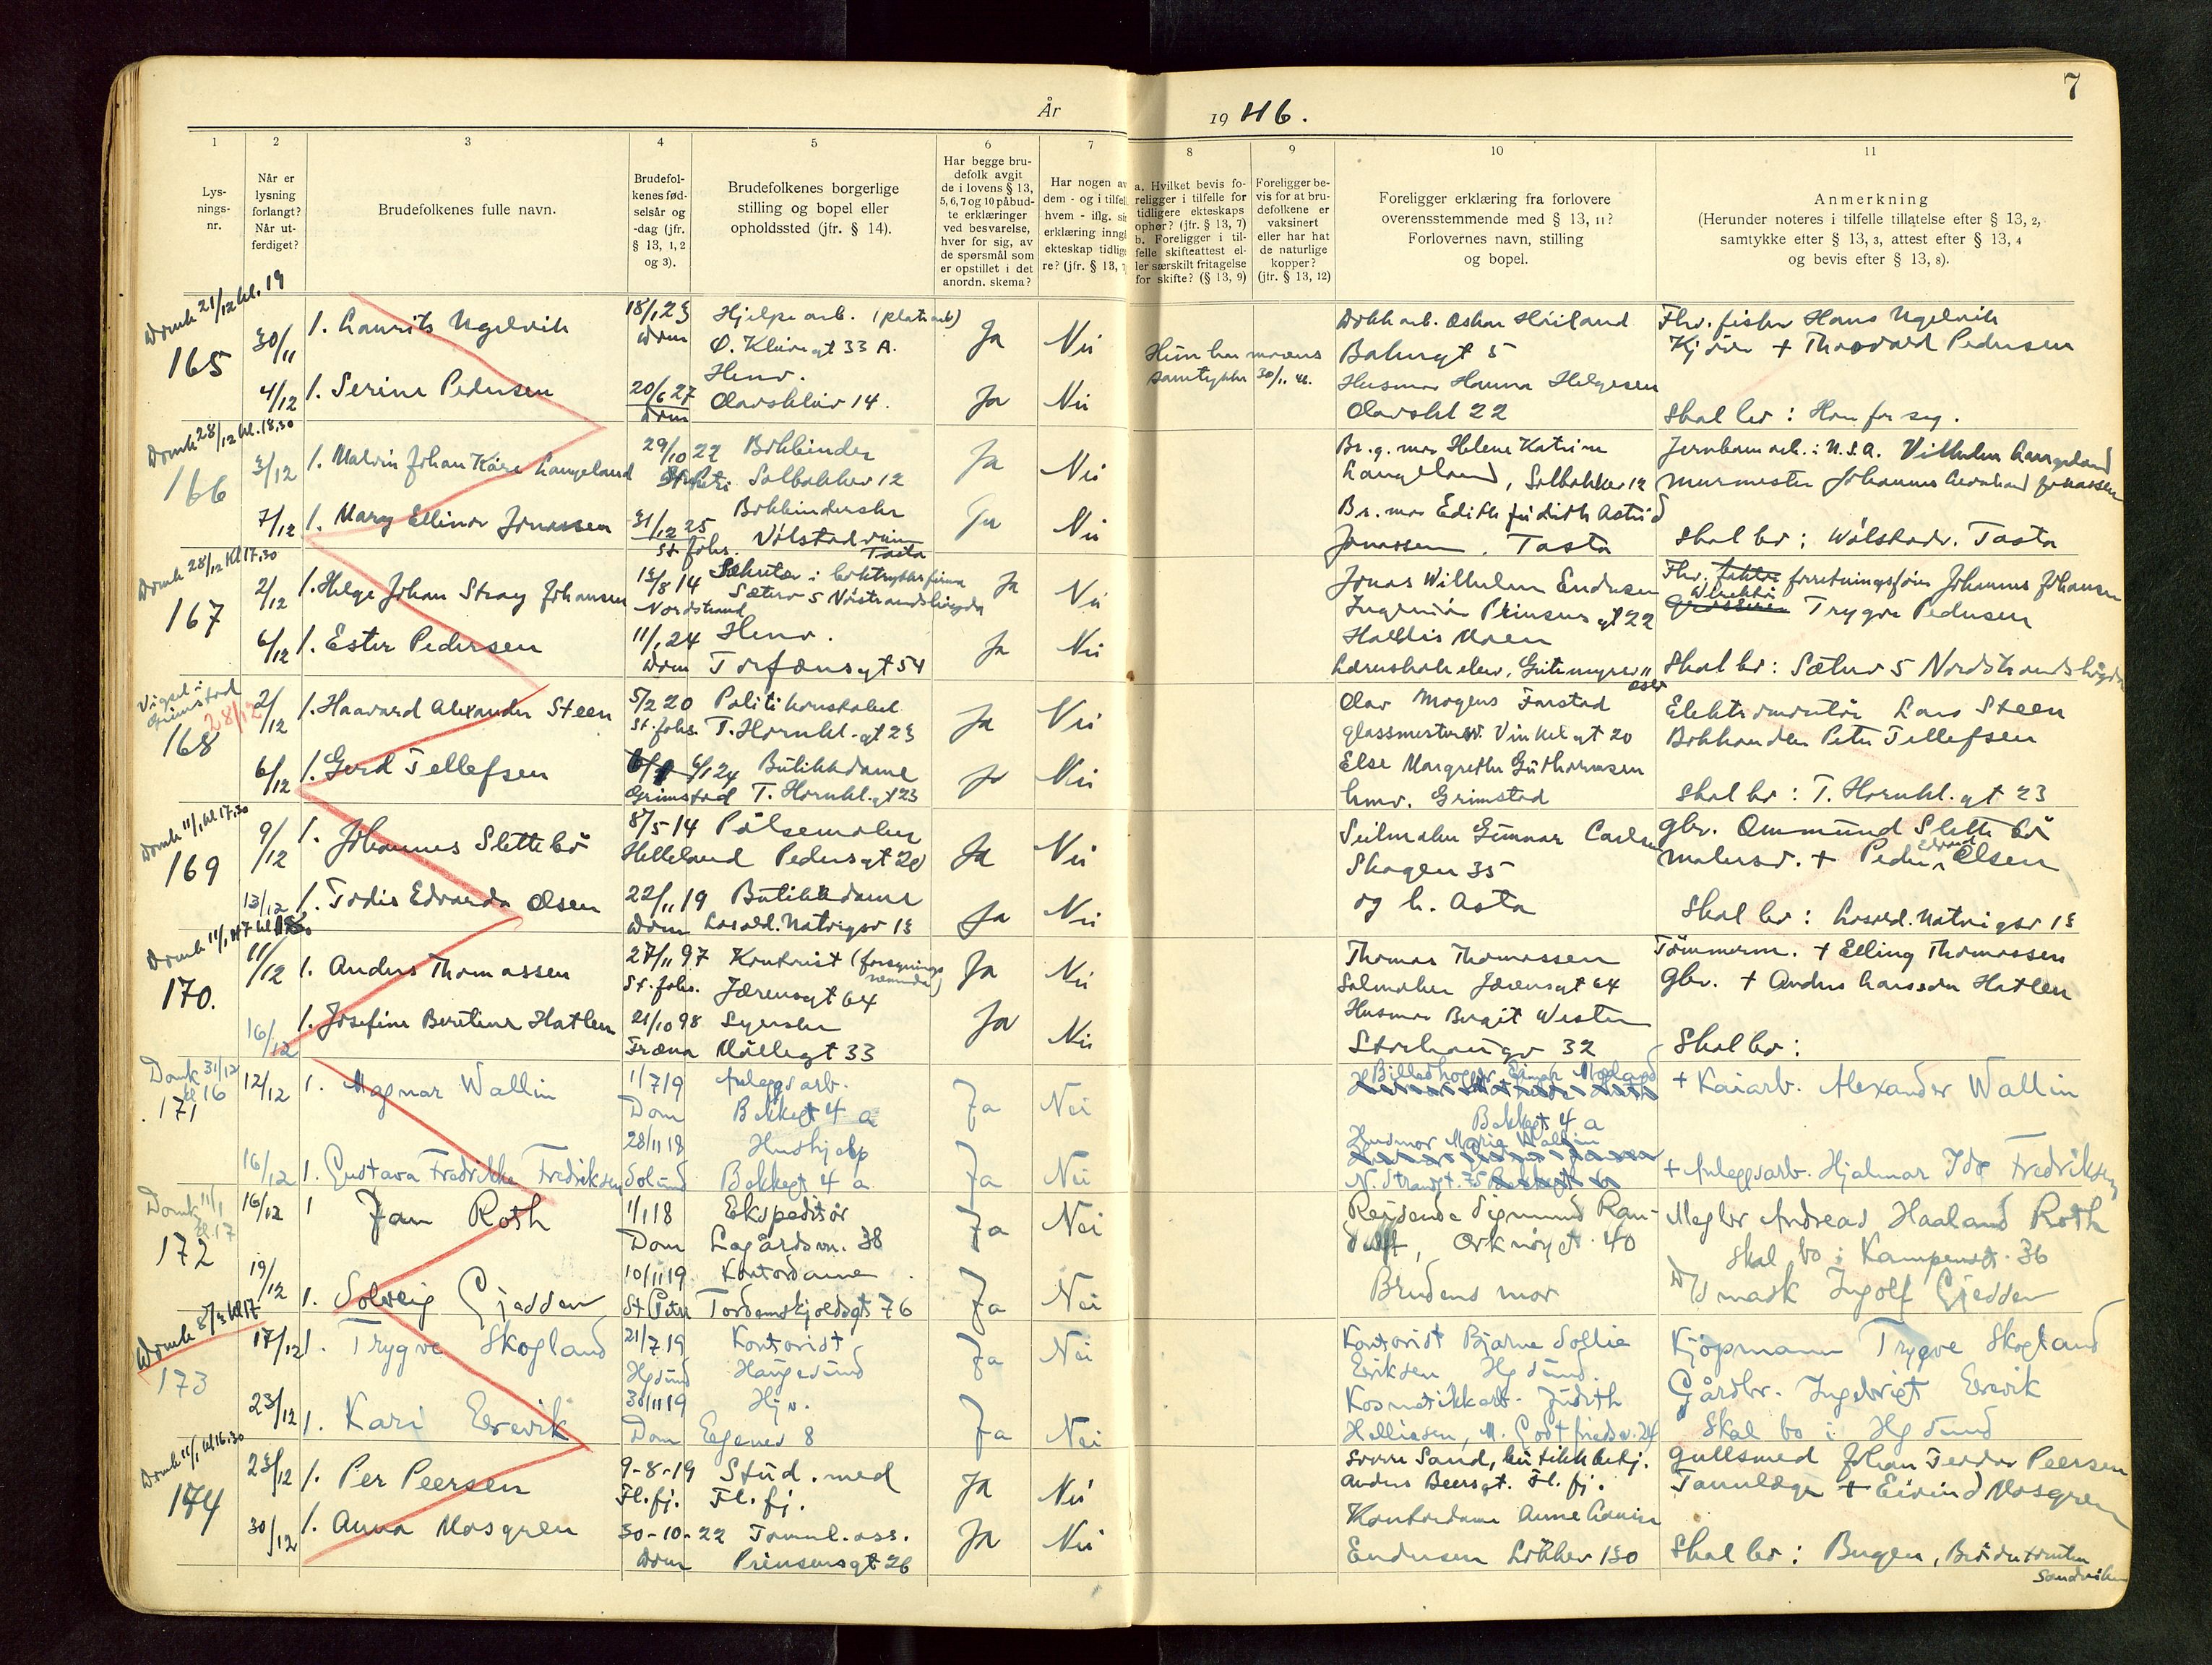 7
År 1946.
1 2 3 4 5 6 7 8 9 10 11
Lys-
nings-
nr.
Når er
lysning
forlangt?
Når ut-
ferdiget?
Brudefolkenes fulle navn.
Brudefol-
kenes fød-
selsår og
-dag (jfr.
§ 13, 1, 2
og 3).
Brudefolkenes borgerlige
stilling og bopel eller
opholdssted (jfr. § 14).
Har begge bru-
defolk avgit
de i lovens § 13,
5, 6, 7 og 10 påbud-
te erklæringer
ved besvarelse,
hver for sig, av
de spørsmål som
er opstillet i det
anordn. skema?
Har nogen av
dem - og i tilfel
hvem - iflg. si
erklæring inng
ekteskap tidlig
re? (jfr. § 13,
a. Hvilket bevis fo-
religger i tilfelle for
tidligere ekteskaps
ophør? (jfr. § 13, 7)
b. Foreligger i til-
felle skifteattest el-
ler særskilt fritagelse
for skifte? (§ 13, 9)
Foreligger be-
vis for at bru-
defolkene er
vaksinert
eller har hat
de naturlige
kopper?
(jfr. § 13, 12)
Foreligger erklæring fra forlovere
overensstemmende med § 13, 11?
Forlovernes navn, stilling
og bopel.
Anmerkning
(Herunder noteres i tilfelle tillatelse efter § 13, 2,
samtykke efter § 13, 3, attest efter § 13, 4
og bevis efter § 13, 8).
Domk 21/12 kl. 19
165
30/11 1. Laurits Ugelvik 18/1 23 Hjelpearb. (platearb) Ja Nei
Dom Ø. Kleivegt 33 A.
4/12 1. Serine Pedersen 20/6 27 Henv. Ja Nei
Dom Olavskleiv 14.
Hun har morens
samtykke 30/11 46.
Dokkarb. Oskar Høiland
Bakergt 5
Husmor Hanna Helgesen
Olavskl 22
Fhv. fisker Hans Ugelvik
Kjører + Thorvald Pedersen
Skal bo: Hver for seg.
Domk 28/12 kl. 18.30
166
3/12 1. Malvin Johan Kåre Langeland 29/10 22 Bokbinder Ja Nei
St. Petri Solbakkev 12
7/12 1. Mary Ellinor Jonassen 31/12 25 Bokbinderske Ja Nei
St. Johs. Vålstadveien Tasta
Br.g. mor Helene Katrine
Langeland, Solbakkev 12
Br. mor Edith Judith Astrid
Jonassen. Tasta
Jernbanearb. i U.S.A. Vilhelm Langeland
Murmester Johannes Jonassen
Skal bo: Vålstadv. Tasta
Domk 28/12 Kl 17.30
167
2/12 1. Helge Johan Stray Johansen 13/8 14 Sekretær i boktrykkerfirma Ja Nei
Nordstrand Sæterv 5 Nordstrandshøgda
6/12 1. Ester Pedersen 11/1 24 Henv. Ja Nei
Dom Torfæusgt 54
Jonas Wilhelm Endresen
Ingeniør Prinsensgt 22
Hallis Moen
Lærerskoleelev. Geitmyrsv 11
Oslo
Fhv. faktor forretningsfører Johannes Johansen
Direktør
Grosserer Trygve Pedersen
Skal bo: Sæterv 5 Nordstrandshøgda
Vigsel i
Grimstad
28/12
168
2/12 1. Haavard Alexander Steen 5/2 20 Politikonstabel Ja Nei
St. Johs. T. Hornkl.gt 23
6/12 1. Gerd Tellefsen 6/1 24 Butikkdame Ja Nei
Grimstad T. Hornkl.gt 23
Olav Mogens Farstad
glassmestersv. Vinkelgt 20
Else Margrethe Guthormsen
hmv. Grimstad
Elektromontør Lars Steen
Bokhandler Peter Tellefsen
Skal bo: T. Hornkl.gt 23
Domk 11/1 kl 17.30
169
9/12 1. Johannes Slettebø 8/5 14 Pølsemaker Ja Nei
Helleland Pedersgt 20
13/12 1. Tordis Edvarda Olsen 22/11 19 Butikkdame Ja Nei
Dom Lars ld. Natvigsv 13
Seilmaker Gunnar Carlsen
Skagen 35
og h. Asta
Gbr. Ommund Slettebø
Malersv. + Peder Edvard Olsen
Skal bo: Natvigsv 13
Domk 11/1 47 kl
170.
11/12 1. Anders Thomassen 27/11 97 Kontorist (forsynings
nemnda) Ja Nei
St. Johs. Jærensgt 64
16/12 1. Josefine Beretine Hatlen 21/10 98 Syerske Ja Nei
Fræna Møllegt 33
Thomas Thomassen
Salmaker Jærensgt 64
Husmor Bergit Westen
Storhaugv 32
Tømmerm. + Elling Thomassen
Gbr. + Anders Larssen Hatlen
Skal bo:
Domk 31/12
kl 16
171
12/12 1. Magnar Wallin 1/7 19 Anleggsarb. Ja Nei
Dom Bakkegt 4 a
16/12 1. Gustava Fredrikke Fredriksen 28/11 18 Hushjelp Ja Nei
Solund Bakkegt 4 a
Billedhogger Einar Mæland
Bakkegt 4 a
Husmor Marie Wallin
N. Strandgt. 75
+ Kaiarb. Alexander Wallin
+ Anleggsarb. Hjalmar Ide Fredriksen
Domk 11/1
kl. 17
172
16/12 1 Jan Roth 1/1 18 Ekspeditør Ja Nei
Dom Lagårdsvn. 38
19/12 1. Solveig Gjedden 10/11 19 Kontordame Ja Nei
St Petri Tordenskjoldsgt 76
Reisende Sigmund Ran-
dulff, Orknøygt. 40
Brudens mor
Megler Andreas Haaland Roth
skal bo i Kampensgt. 36
D/S mask Ingolf Gjedden
Domk 8/3 kl 17
173
17/12 1. Trygve Skogland 21/7 19 Kontorist Ja Nei
Hgsund Haugesund
23/12 1. Kari Erevik 30/11 19 Hjv. Ja Nei
Dom Egenes 8
Kontorist Bjarne Sollie
Eriksen Hgsund.
Kosmetikkarb. Judith
Helliesen, M. Godtfriedsv. 24
Kjøpmann Trygve Skogland
Gårdbr. Ingebrigt Erevik
Skal bo i Hgsund
Domk 11/1 kl 16.30
174
23/12 1. Per Peersen 9-8-19 Stud. med Ja Nei
Fl.fj. Fl.fj.
30/12 1. Anna Mosgren 30-10-22 Tannl.ass. Ja Nei
Dom Prinsensgt 26
Sverre Sand, butikkbetj.
Anders Beersgt. Fl.fj.
Kontordame Anne Lovise
Endresen Løkkev 130
Gullsmed Johan Feodor Peersen
Tannlege + Eivind Mosgren
Skal bo:
Sandviken